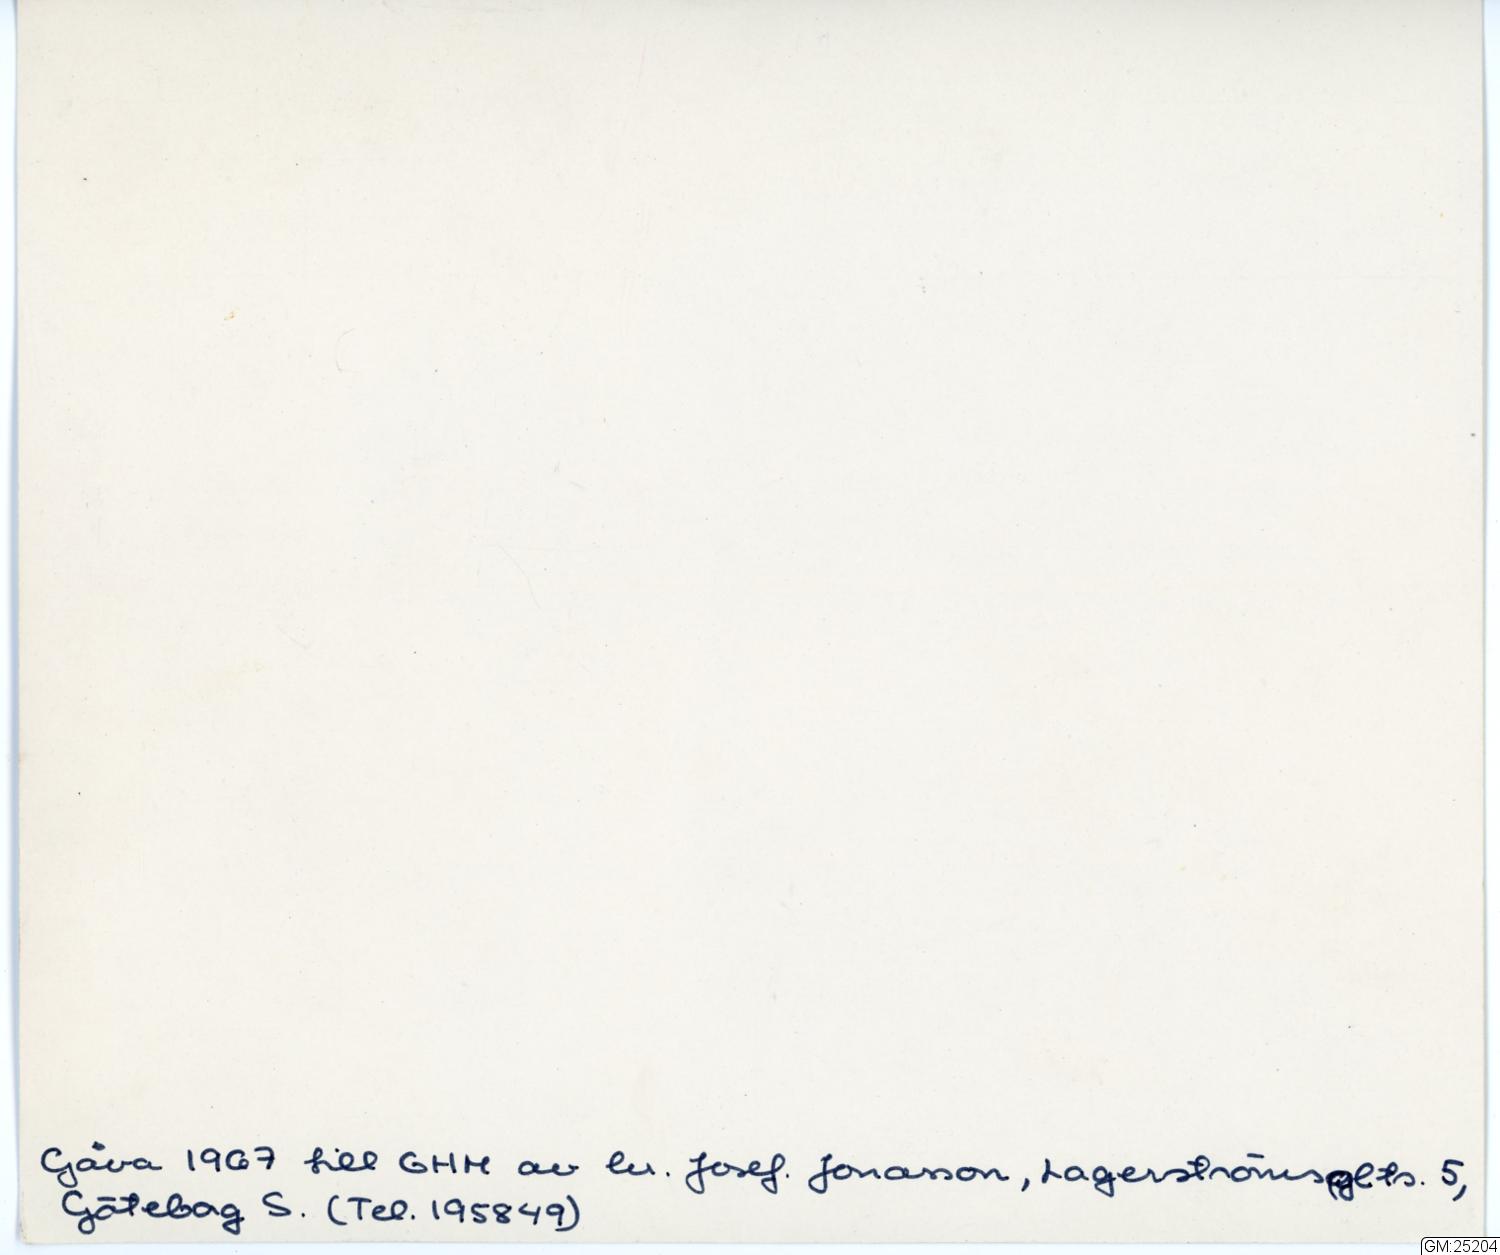 Gåva 1967 till GHM av hr. Josef. Jonasson, Lagerströmsplts. 5,
Göteborg S. (Tel. 195849)
GM:25204